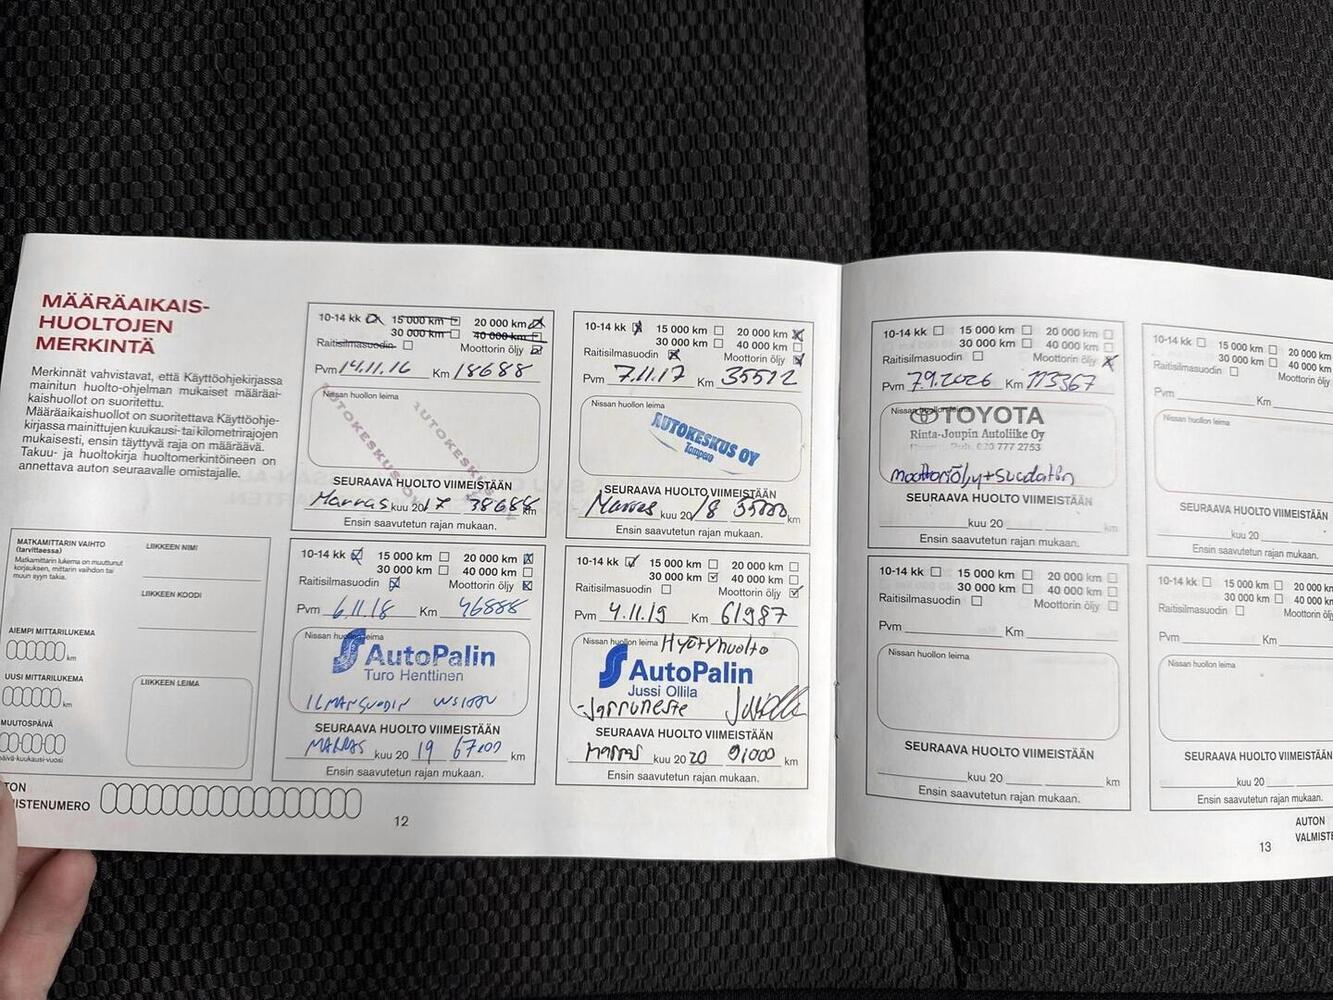 MÄÄRÄAIKAIS-
HUOLTOJEN
MERKINTÄ
Merkinnät vahvistavat, että Käyttöohjekirjassa
mainitun huolto-ohjelman mukaiset määräai-
kaishuollot on suoritettu.
Määräaikaishuollot on suoritettava Käyttöohje-
kirjassa mainittujen kuukausi- tai kilometrirajojen
mukaisesti, ensin täyttyvä raja on määräävä.
Takuu- ja huoltokirja huoltomerkintöineen on
annettava auton seuraavalle omistajalle.
MATKAMITTARIN VAIHTO
(tarvittaessa)
Matkamittarin lukema on muuttunut
korjauksen, mittarin vaihdon tai
muun syyn takia.
LIIKKEEN NIMI
LIIKKEEN KOODI
AIEMPI MITTARILUKEMA
km
UUSI MITTARILUKEMA
km
LIIKKEEN LEIMA
MUUTOSPÄIVÄ
päivä-kuukausi-vuosi
10-14 kk 15 000 km 20 000 km
30 000 km 40 000 km
Raitisilmasuodin Moottorin öljy
Pvm 14.11.16 Km 18688
Nissan huollon leima
AUTOKESKUS OY
AUTOKESKUS
SEURAAVA HUOLTO VIIMEISTÄÄN
Marras kuu 20 17 38688 km
Ensin saavutetun rajan mukaan.
10-14 kk 15 000 km 20 000 km
30 000 km 40 000 km
Raitisilmasuodin Moottorin öljy
Pvm 7.11.17 Km 35512
Nissan huollon leima
AUTOKESKUS OY
Tampere
SEURAAVA HUOLTO VIIMEISTÄÄN
Marras kuu 20 18 km
Ensin saavutetun rajan mukaan.
10-14 kk 15 000 km 20 000 km
30 000 km 40 000 km
Raitisilmasuodin Moottorin öljy
Pvm 6.11.18 Km 46888
Nissan huollon leima
AutoPalin
Turo Henttinen
ILMANSUODIN
SEURAAVA HUOLTO VIIMEISTÄÄN
MARRAS kuu 20 19 67000 km
Ensin saavutetun rajan mukaan.
10-14 kk 15 000 km 20 000 km
30 000 km 40 000 km
Raitisilmasuodin Moottorin öljy
Pvm 4.11.19 Km 61987
Nissan huollon leima Hyötyhuolto
AutoPalin
Jussi Ollila
-Jarruneste
SEURAAVA HUOLTO VIIMEISTÄÄN
Marras kuu 20 20 91000 km
Ensin saavutetun rajan mukaan.
MISTENUMERO
12
10-14 kk 15 000 km 20 000 km
30 000 km 40 000 km
Raitisilmasuodin Moottorin öljy
Pvm 7.9.2026 Km 113367
Nissan huollon leima
TOYOTA
Rinta-Joupin Autoliike Oy
020 777 2753
moottoriöljy+suodatin
SEURAAVA HUOLTO VIIMEISTÄÄN
kuu 20 km
Ensin saavutetun rajan mukaan.
10-14 kk 15 000 km 20 000 km
30 000 km 40 000 km
Raitisilmasuodin Moottorin öljy
Pvm Km
Nissan huollon leima
SEURAAVA HUOLTO VIIMEISTÄÄN
kuu 20
Ensin saavutetun rajan mukaan.
10-14 kk 15 000 km 20 000 km
30 000 km 40 000 km
Raitisilmasuodin Moottorin öljy
Pvm Km
Nissan huollon leima
SEURAAVA HUOLTO VIIMEISTÄÄN
kuu 20 km
Ensin saavutetun rajan mukaan.
10-14 kk 15 000 km 20 000 km
30 000 km 40 000 km
Raitisilmasuodin Moottorin öljy
Pvm Km
Nissan huollon leima
SEURAAVA HUOLTO VIIMEISTÄÄN
kuu 20
Ensin saavutetun rajan mukaan.
AUTON
VALMISTE
13